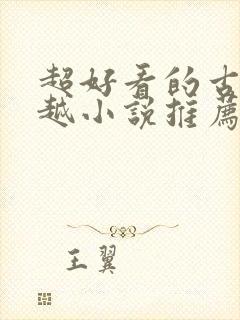 超好看的古
越小說推薦
王翼